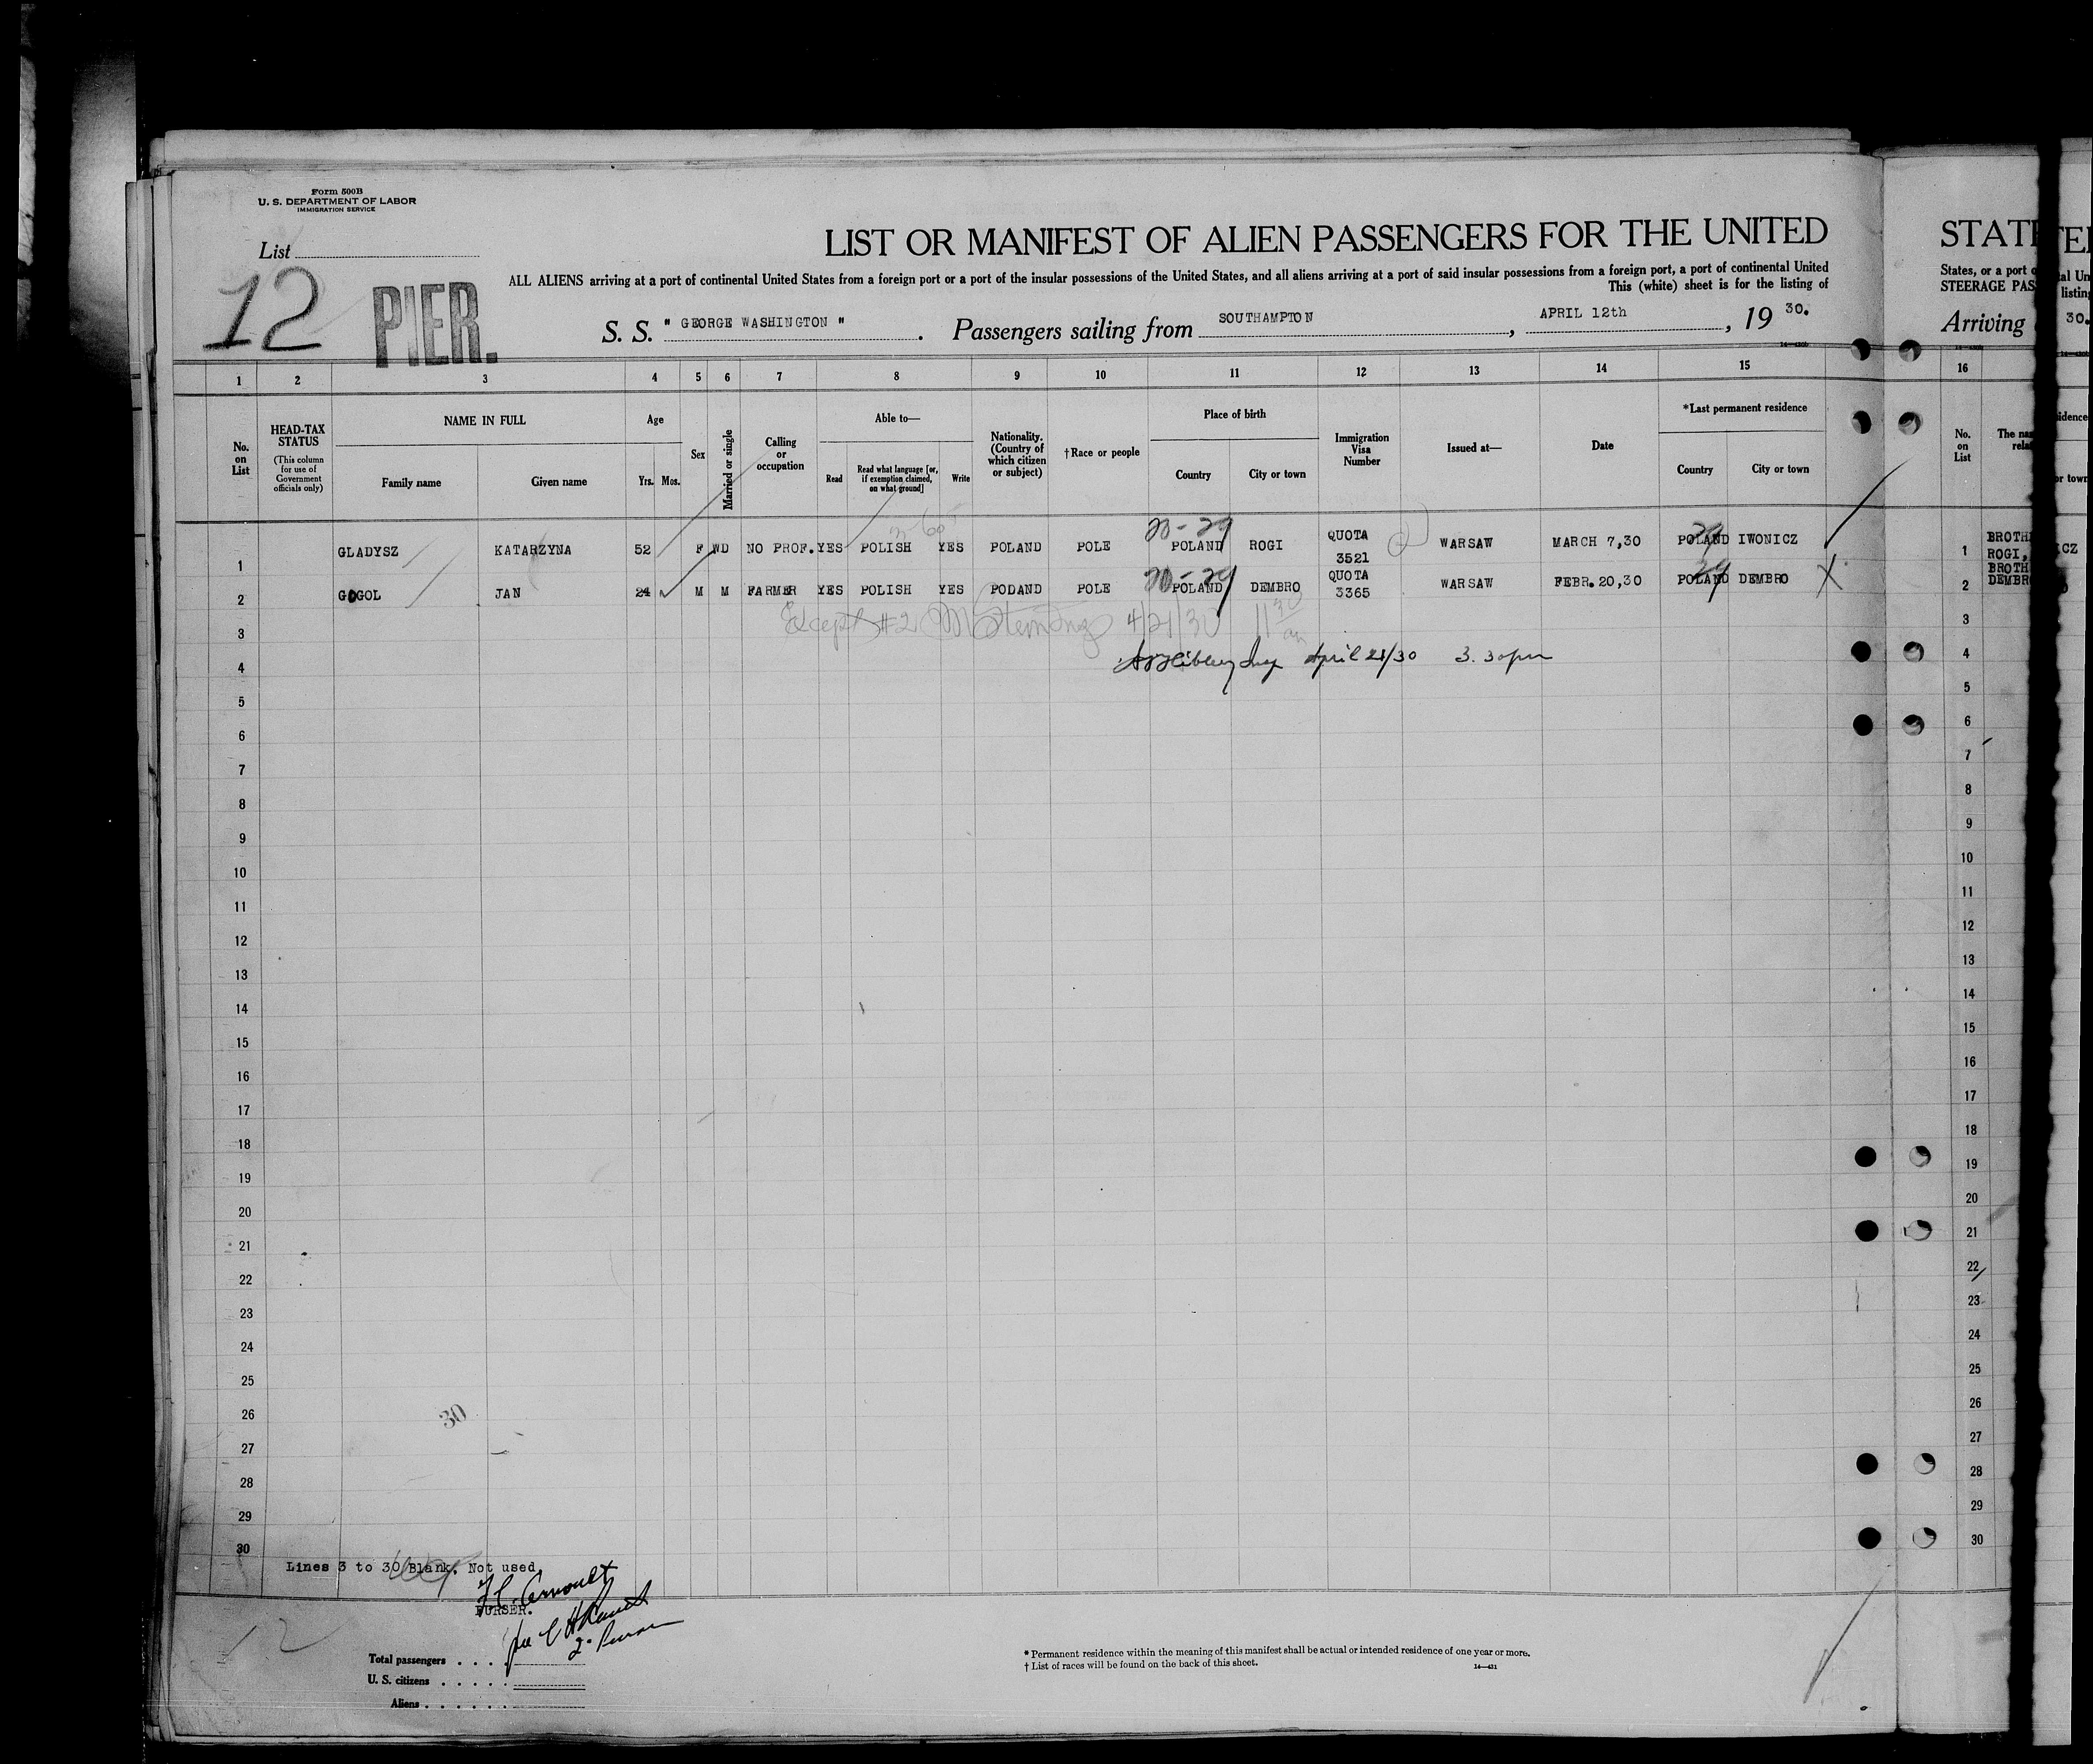 Form 500B
U. S. DEPARTMENT OF LABOR
IMMIGRATION SERVICE
List
12 PIER.
LIST OR MANIFEST OF ALIEN PASSENGERS FOR THE UNITED
ALL ALIENS arriving at a port of continental United States from a foreign port or a port of the insular possessions of the United States, and all aliens arriving at a port of said insular possessions from a foreign port, a port of continental United
This (white) sheet is for the listing of
S. S. " GEORGE WASHINGTON ". Passengers sailing from SOUTHAMPTON, APRIL 12th, 19 30.
STAT
States, or a port o
STEERAGE PAS
Arriving
al Un
listing
30.
1 2 3 4 5 6 7 8 9 10 11 12 13 14 15 16
No. on List
HEAD-TAX STATUS
(This column for use of Government officials only)
NAME IN FULL
Family name Given name
Age
Yrs. Mos.
Sex
Married or single
Calling or occupation
Able to—
Read
Read what language [or, if exemption claimed, on what ground]
Write
Nationality. (Country of which citizen or subject)
†Race or people
Place of birth
Country City or town
Immigration Visa Number
Issued at—
Date
*Last permanent residence
Country City or town
No. on List
The na
rela
idence
or town
1 GLADYSZ KATARZYNA 52 F WD NO PROF. YES POLISH YES POLAND POLE POLAND ROGI QUOTA 3521 WARSAW MARCH 7,30 POLAND IWONICZ 1 BROTH
ROGI,
CZ
2 GOGOL JAN 24 M M FARMER YES POLISH YES PODAND POLE POLAND DEMBRO QUOTA 3365 WARSAW FEBR.20,30 POLAND DEMBRO 2 BROTH
DEMBR
20-29
29
20-29
29
X
3 Except #2 4/21/30 11 30 am 3
4 April 21/30 3.30pm 4
5 5
6 6
7 7
8 8
9 9
10 10
11 11
12 12
13 13
14 14
15 15
16 16
17 17
18 18
19 19
20 20
21 21
22 22
23 23
24 24
25 25
26 26
30
27 27
28 28
29 29
30 30
Lines 3 to 30 Blank. Not used
PURSER.
12
Total passengers . . . .
U. S. citizens . . . . .
Aliens . . . . . .
* Permanent residence within the meaning of this manifest shall be actual or intended residence of one year or more.
† List of races will be found on the back of this sheet.
14—431